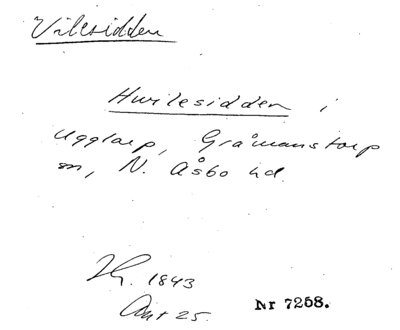 Vilesidden
Hwilesidden i
Ugglarp, Gråmanstorp
sn, N. Åsbo hd.
1843
Ant 25. Nr 7268.